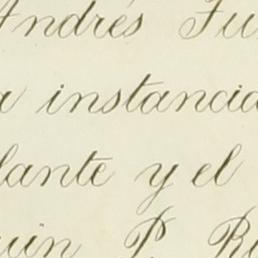 Andrés Fu
a instancia
lante y el
uin P. R